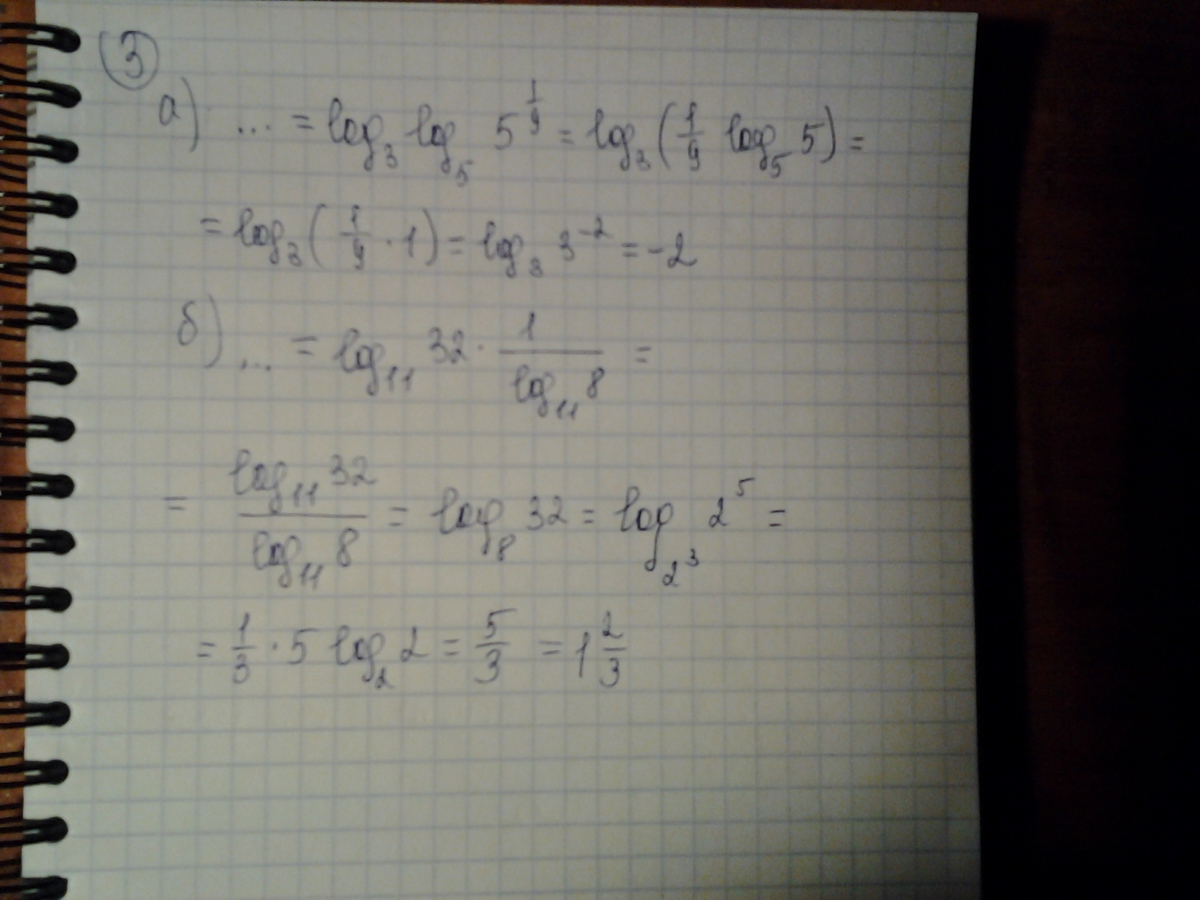 3
а) ... = log₃ log₅ 5^(1/9) = log₃(1/9 log₅ 5) =
= log₃(1/9 · 1) = log₃ 3⁻² = -2
б) ... = log₁₁ 32 · 1/log₁₁ 8 =
= log₁₁ 32 / log₁₁ 8 = log₈ 32 = log_(2³) 2⁵ =
= 1/3 · 5 log₂ 2 = 5/3 = 1 2/3